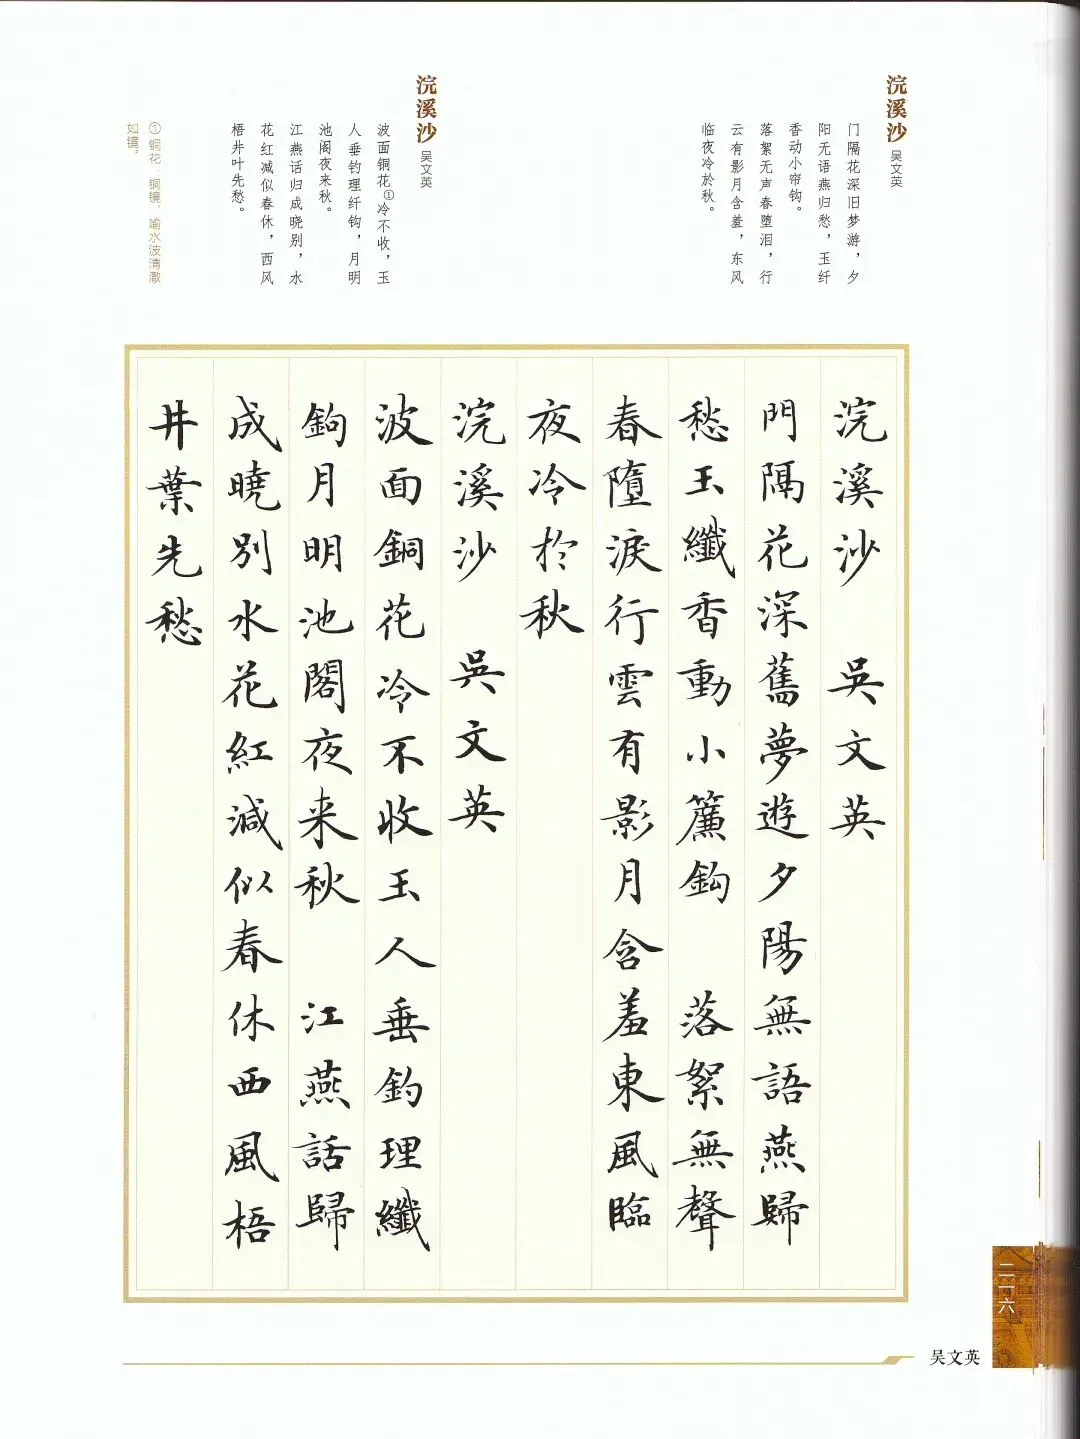 浣溪沙 吴文英
门隔花深旧梦游，夕
阳无语燕归愁，玉纤
香动小帘钩。
落絮无声春堕泪，行
云有影月含羞，东风
临夜冷於秋。
浣溪沙 吴文英
波面铜花①冷不收，玉
人垂钓理纤钩，月明
池阁夜来秋。
江燕话归成晓别，水
花红减似春休，西风
梧井叶先愁。
① 铜花：铜镜，喻水波清澈
如镜。
浣溪沙 吳文英
門隔花深舊夢遊夕陽無語燕歸
愁玉纖香動小簾鈎 落絮無聲
春墮淚行雲有影月含羞東風臨
夜冷於秋
浣溪沙 吳文英
波面銅花冷不收玉人垂釣理纖
鉤月明池閣夜来秋 江燕話歸
成曉別水花紅減似春休西風梧
井葉先愁
二一六
吴文英